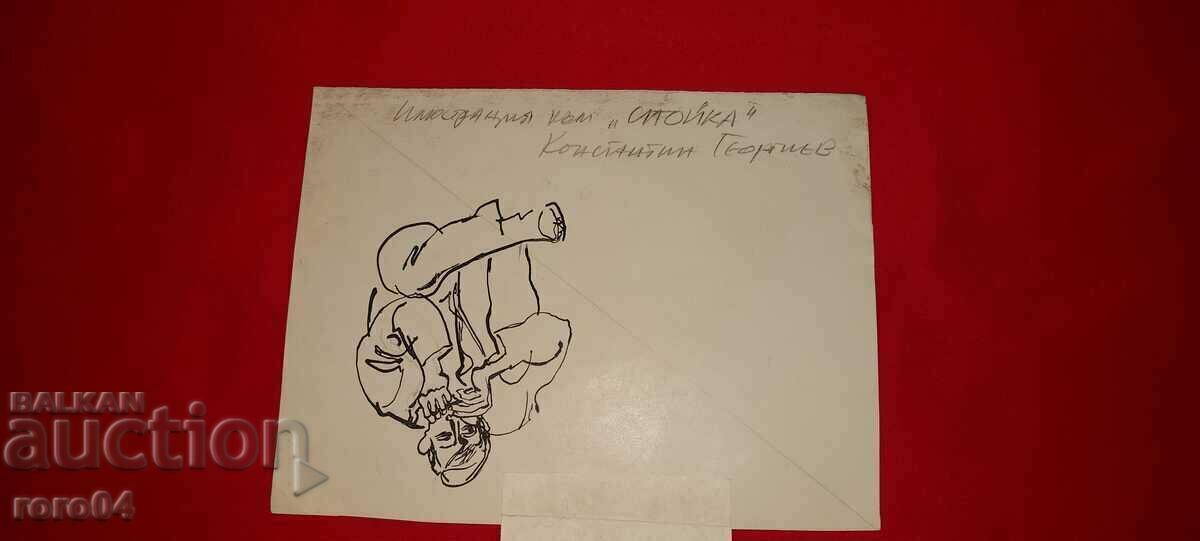 Илюстрация към „СТОЙКА"
Константин Георгиев
BALKAN
auction
roro04